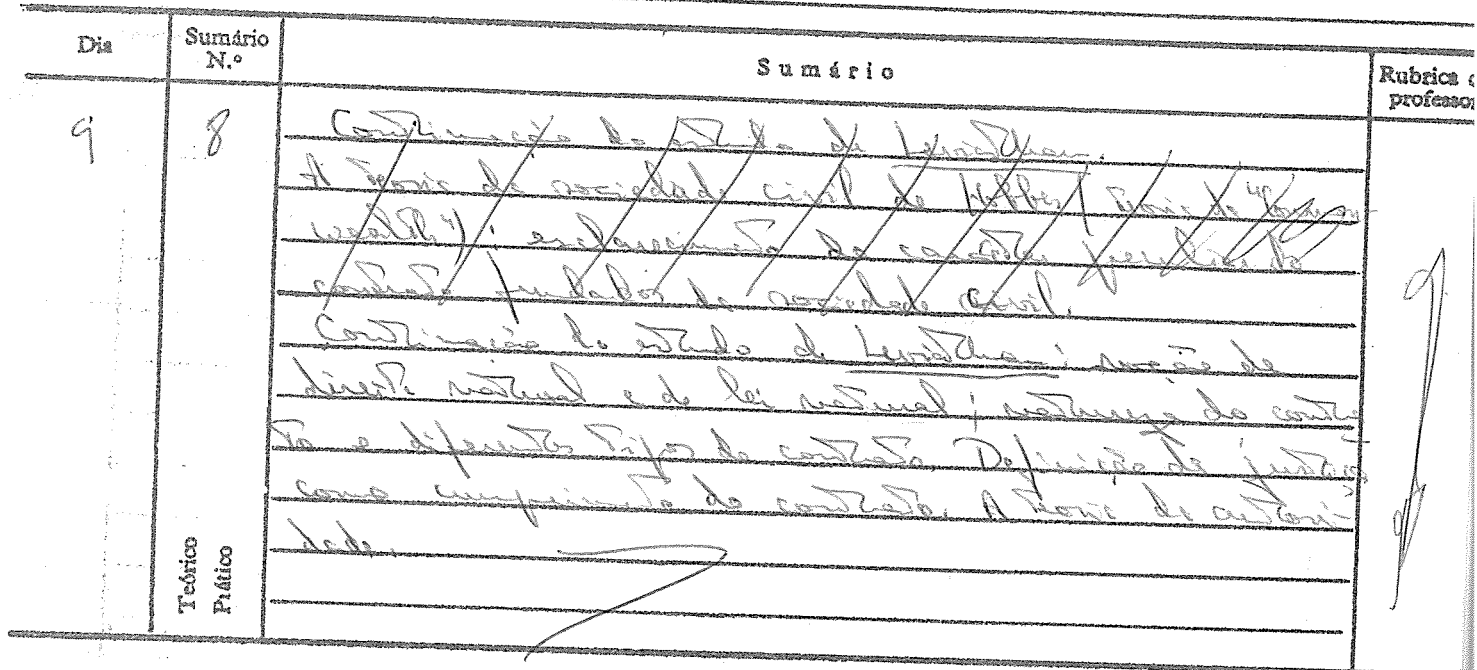 Dia
Sumário N.º
Sumário
Rubrica d
professor
9
8
Continuação do estudo de Leviathan.
A teoria da sociedade civil de Hobbes (teoria do "Common-
wealth"); esclarecimento do carácter peculiar do
contrato fundador da sociedade civil.
Continuação do estudo de Leviathan: noção de
direito natural e de lei natural; natureza do contra-
to e diferentes tipos de contrato. Definição de justiça
como cumprimento do contrato. A teoria da autori-
dade.
Teórico
Prático